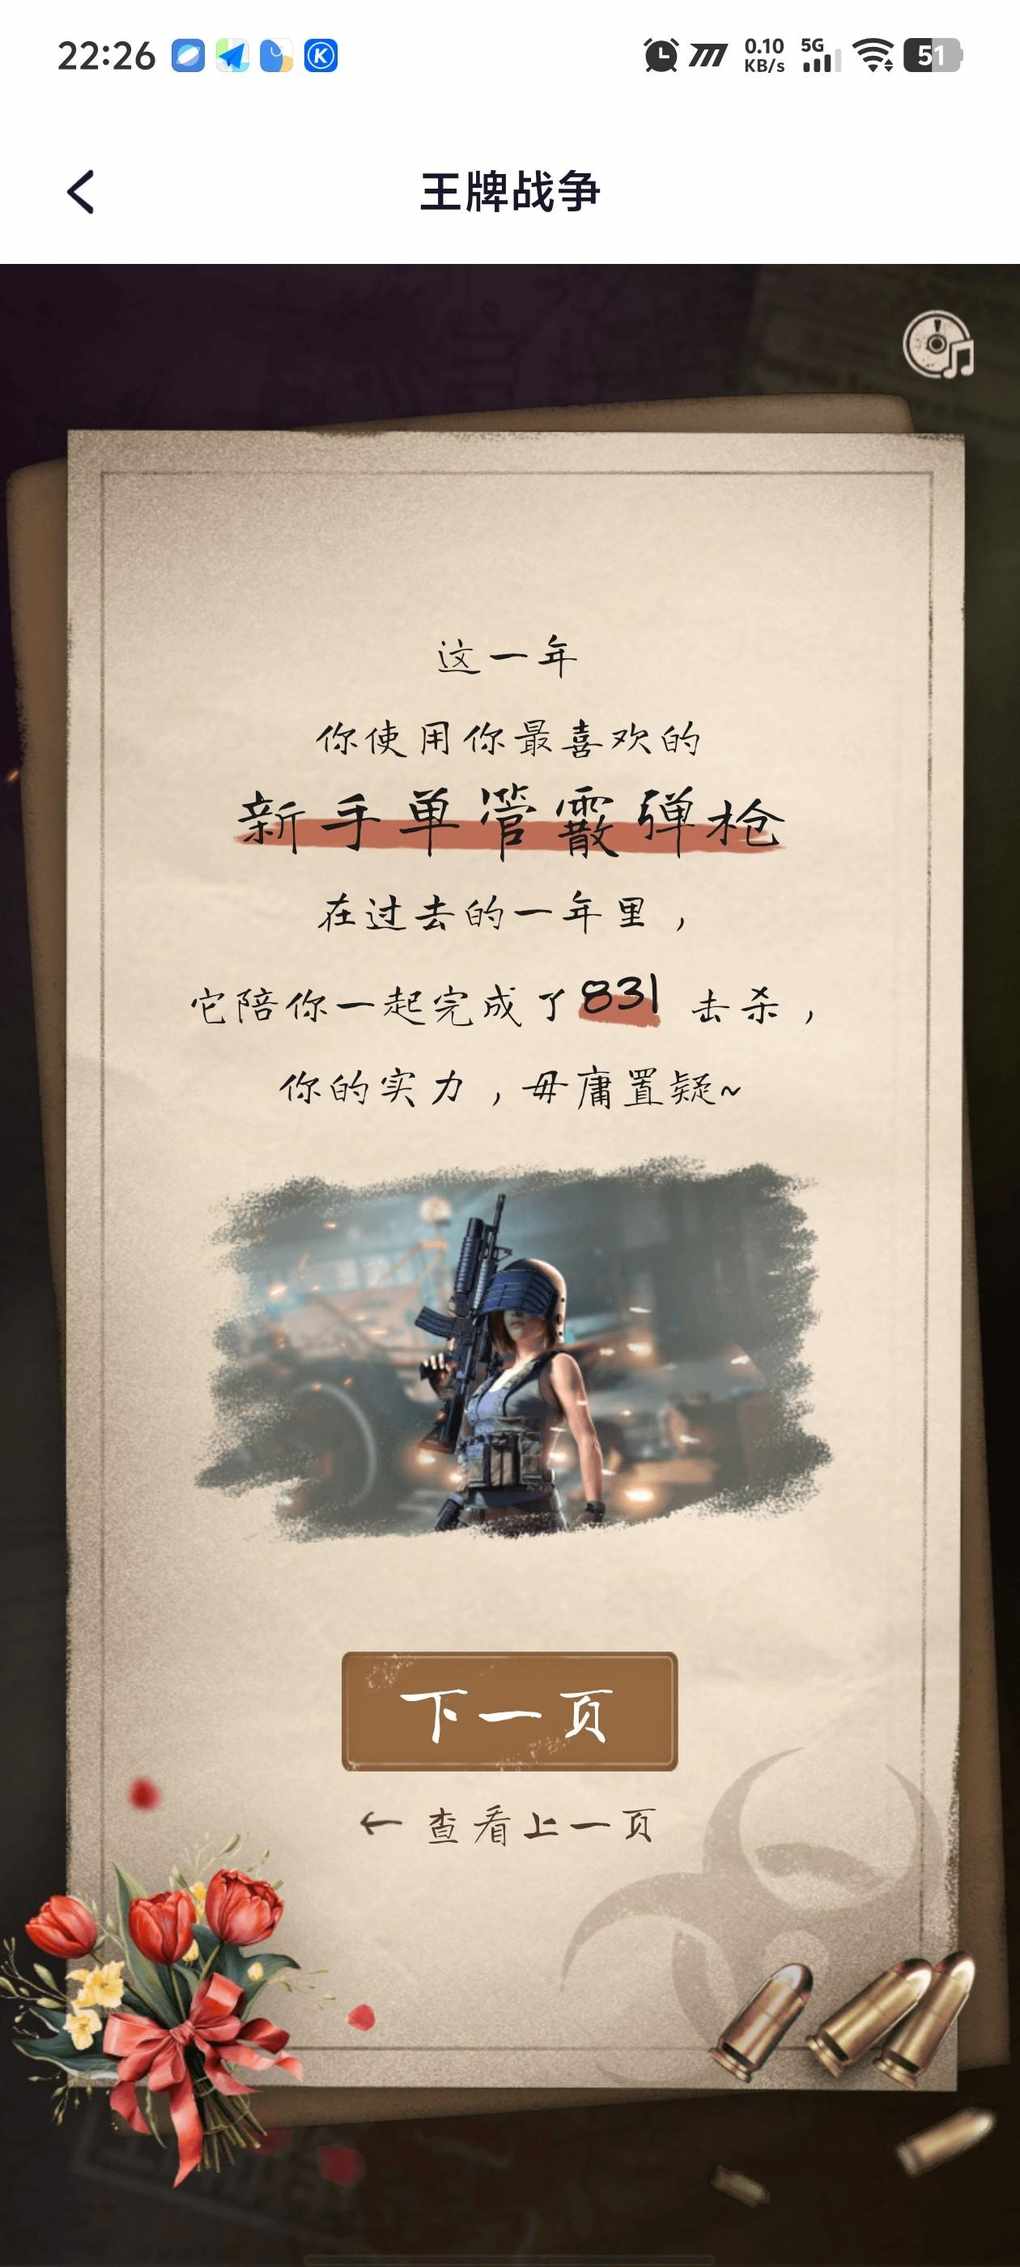 22:26
0.10 KB/s 5G 51
王牌战争
这一年
你使用你最喜欢的
新手单管霰弹枪
在过去的一年里，
它陪你一起完成了831 击杀，
你的实力，毋庸置疑~
下一页
← 查看上一页